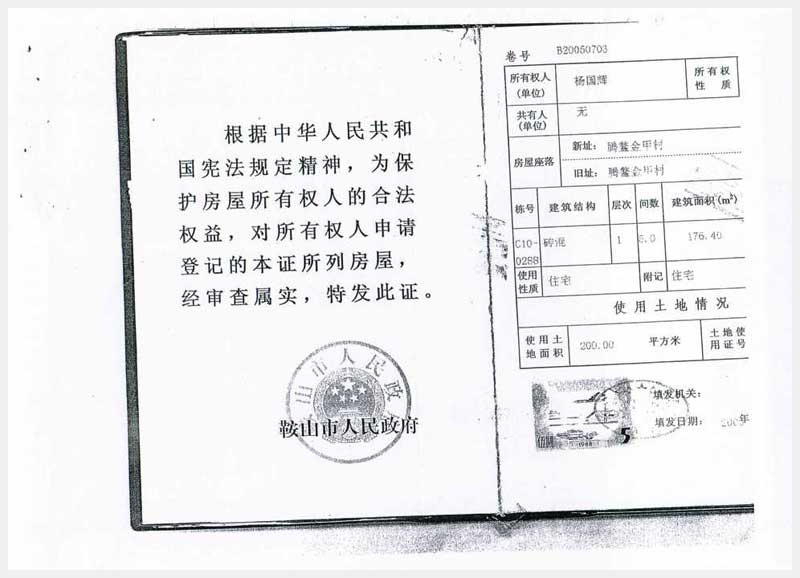 根据中华人民共和
国宪法规定精神，为保
护房屋所有权人的合法
权益，对所有权人申请
登记的本证所列房屋，
经审查属实，特发此证。
山市人民政
鞍山市人民政府
卷号 B20050703
所有权人(单位) 杨国辉 所有权性质
共有人(单位) 无
房屋座落 新址：腾鳌金甲村
旧址：腾鳌金甲村
栋号 建筑结构 层次 间数 建筑面积(m²)
C10-0288 砖混 1 6.0 176.40
使用性质 住宅 附记 住宅
使用土地情况
使用土地面积 200.00 平方米 土地使用证号
5
填发机关：
填发日期： 200 年